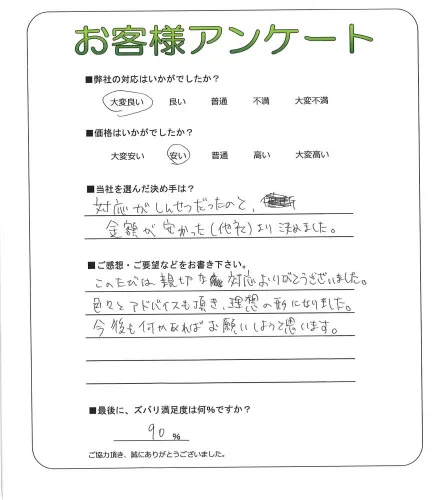 お客様アンケート
■弊社の対応はいかがでしたか?
大変良い 良い 普通 不満 大変不満
■価格はいかがでしたか?
大変安い 安い 普通 高い 大変高い
■当社を選んだ決め手は?
対応がしんせつだったのと、
金額が安かった(他社)より決めました。
■ご感想・ご要望などをお書き下さい。
このたびは親切な対応ありがとうございました。
色々とアドバイスも頂き、理想の形になりました。
今後も何かあればお願いしようと思います。
■最後に、ズバリ満足度は何%ですか?
90 %
ご協力頂き、誠にありがとうございました。